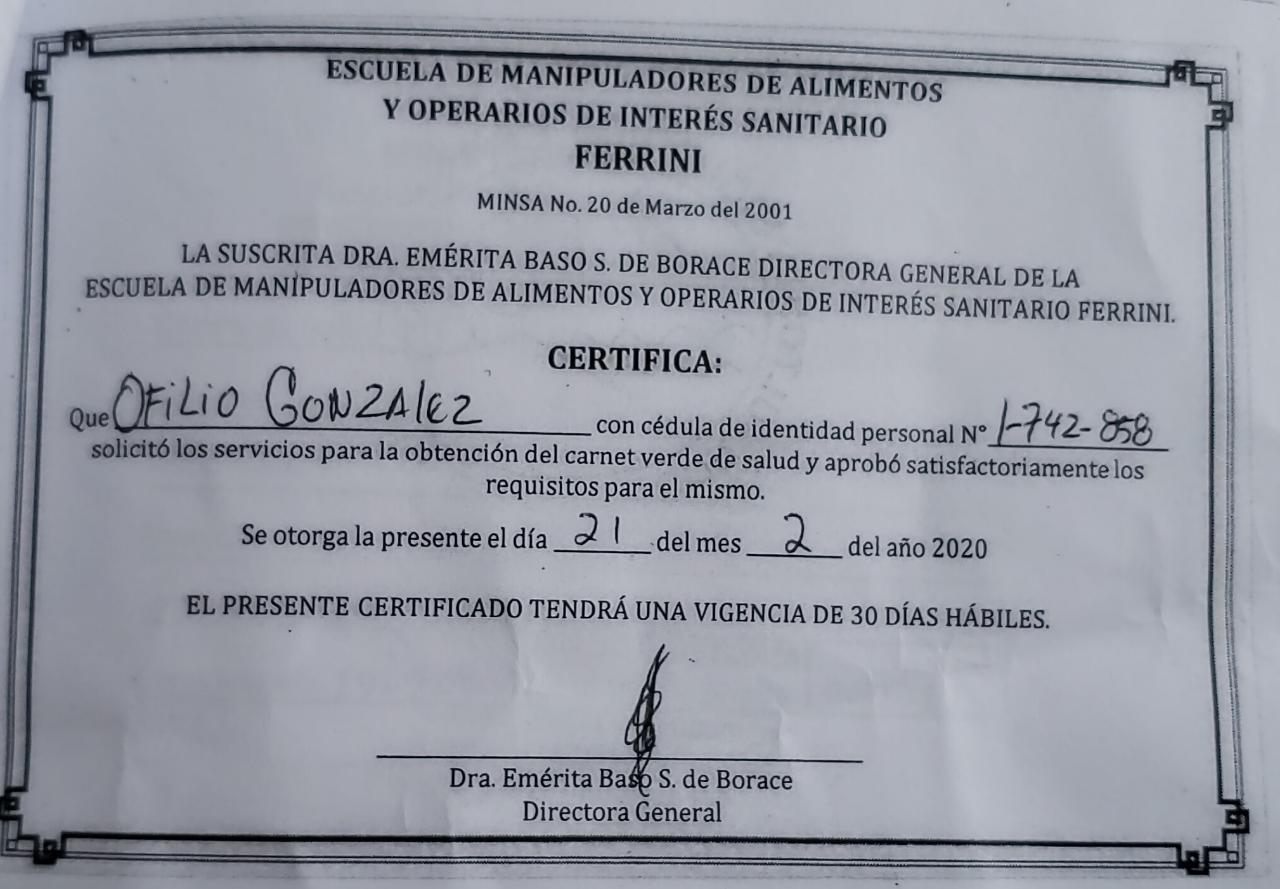 ESCUELA DE MANIPULADORES DE ALIMENTOS
Y OPERARIOS DE INTERÉS SANITARIO
FERRINI
MINSA No. 20 de Marzo del 2001
LA SUSCRITA DRA. EMÉRITA BASO S. DE BORACE DIRECTORA GENERAL DE LA
ESCUELA DE MANIPULADORES DE ALIMENTOS Y OPERARIOS DE INTERÉS SANITARIO FERRINI.
CERTIFICA:
Que OFiLiO GONZAlEZ con cédula de identidad personal N° 1-742-858
solicitó los servicios para la obtención del carnet verde de salud y aprobó satisfactoriamente los
requisitos para el mismo.
Se otorga la presente el día 21 del mes 2 del año 2020
EL PRESENTE CERTIFICADO TENDRÁ UNA VIGENCIA DE 30 DÍAS HÁBILES.
Dra. Emérita Baso S. de Borace
Directora General